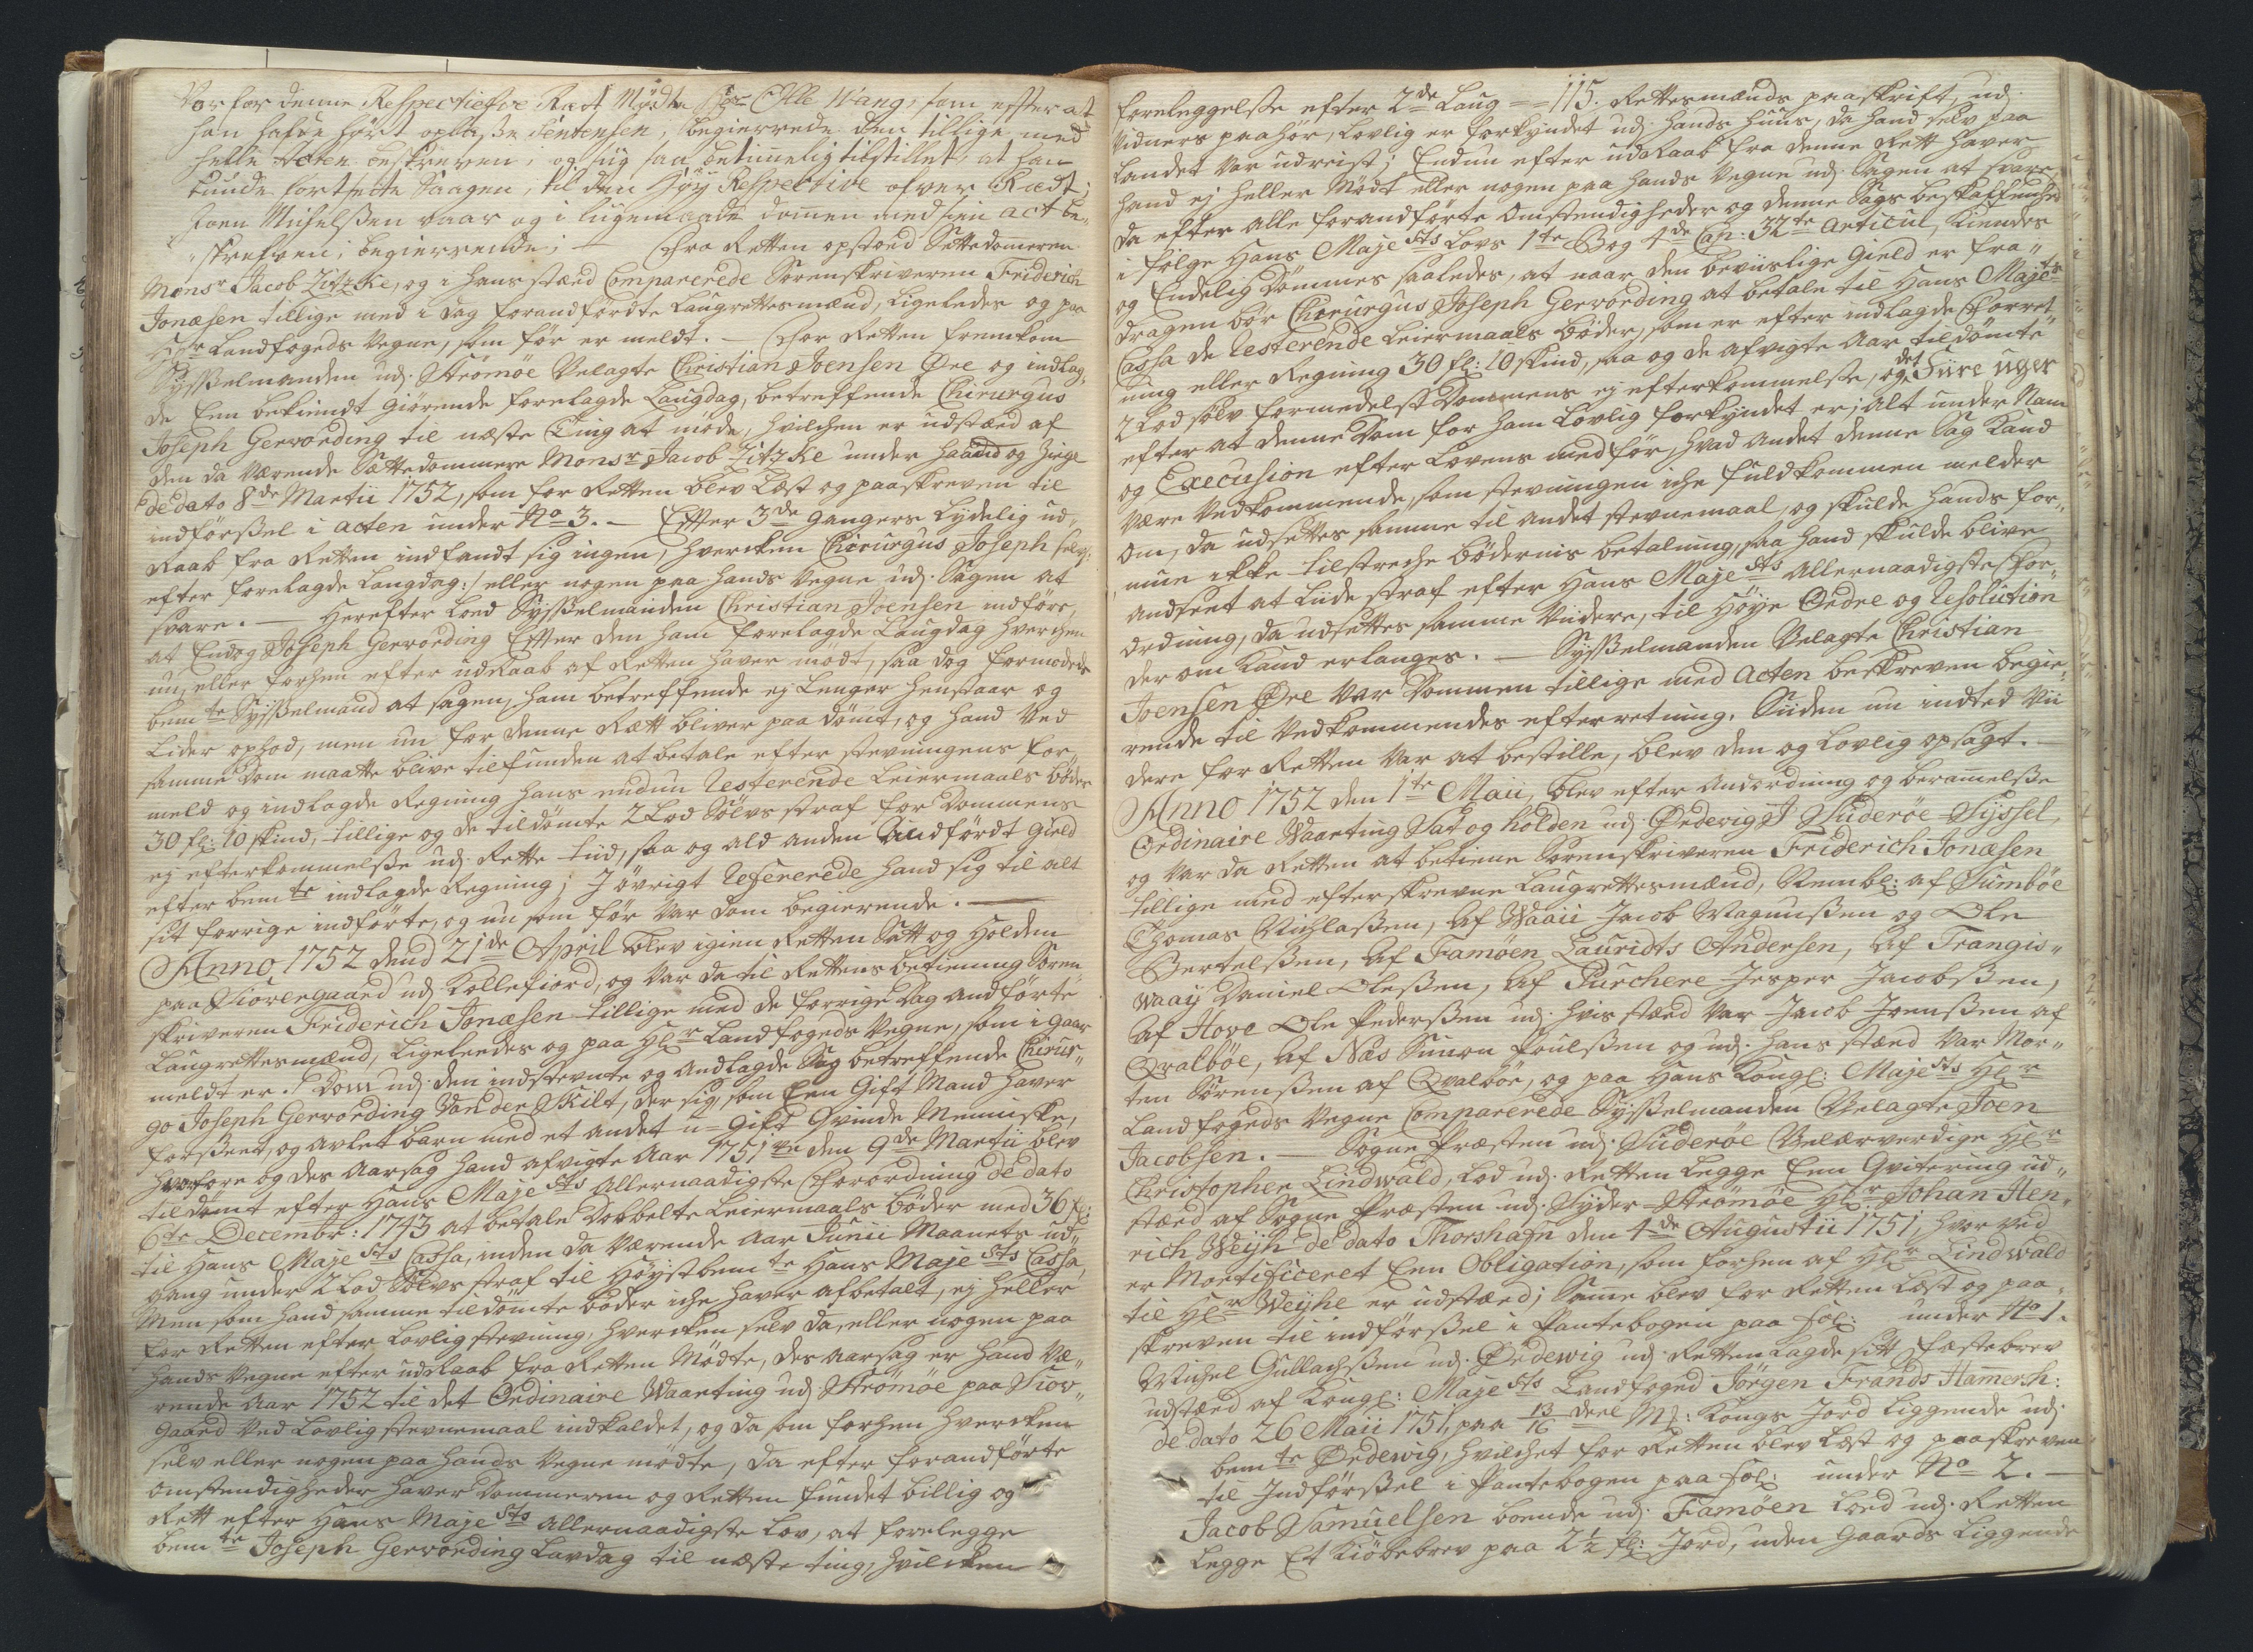 Vor for denne Respectiefve Rædt Mødte Hr Olle Wang, som effter at
han hafde hørt oplæse Sentensen, begierrede den tillige med
heele Acten beskreven, og sig saa betimmelig tilstillet, at han
kunde fortsætte Saagen, til den Høy Respective ofver Rædt;
Joen Michelsen vaar og i liigemaade domen med sin act be¬
skrefven; begierrende; — Fra Retten opstoed Settedomeren
Monsr Jacob Zitzke, og i hans stæd Comparerede Sorenskriveren Friderich
Jonæsen tillige med i dag forandførdte Laugrettesmænd, ligeledes og paa
Hr Landfogeds Vegne, som før er meldt. — For Retten fremkom
Sysselmanden udj Strømøe Velagte Christian Joensen Øre og indlag¬
de Een bekiendt giørende forelagde Laugdag, betreffende Chirurgus
Joseph Gervording til næste Ting at møde, hvilchen er udstæd af
den da værende Sættedommere Monsr Jacob Zitzke under haand og Zeigl
de dato 8de Martii 1752, som for Retten blev Læst og paaskreven til
indførsel i acten under No 3. — Efter 3de ganger Lydelig ud¬
Raab fra Retten indfandt sig ingen, hvercken Chirurgus Joseph selv
efter forelagde Laugdag: eller nogen paa hands Vegne udj Sagen at
svare. — Herefter loed Sysselmanden Christian Joensen indføre,
at Endog Joseph Gervording Efter den ham forelagde Laugdag hverchen
nu, eller forhen efter udRaab af Retten haver mødt, saa dog formodede
bemte Sysselmand at sagen ham betreffende ej Lenger henstaar og
Lider ophod, men nu for denne Rætt bliver paa dømt, og hand ved
samme Dom maatte blive tilfunden at betale efter stevningens for¬
meld og indlagde Regning hans endnu Resterende Leiermaals bøder
30 fl: 10 skind, tillige og de tildømte 2 Lod Sølvs straf for Dommens
ej efterkommelse udj Rette tiid, saa og ald anden Andførdt gield
efter bemte indlagde Regning; J øvrigt Refererede hand sig til alt
sit forrige indførte, og nu som før var dom begierende. —
Anno 1752 dend 21de April blev igien Retten Sætt og holden
paa Siovegaard udj Kollefiord, og var da til Rettens betiening Soren¬
skriveren Friderich Jonæsen tillige med de forrige Dag andførte
Laugrettesmænd, ligeleedes og paa Hr Landfogeds Vegne, som i gaar
meldt er. Dom udj den indstevnte og andlagde Sag betreffende Chirur¬
go Joseph Gerwording Van der Skilt, der sig, som Een Gift Mand haver
forseet, og avlet barn med et andet u-Gift Qvinde Menniske,
hvorfore og des aarsag hand afvigte Aar 1751 den 9de Martii blev
tildømt efter Hans Majests allernaadigste Forordning de dato
6te Decembr: 1743 at betale dobbelte Leiermaals bøder med 36 fl:
til Hans Majests Cassa, inden da værende Aar Junii Maanets ud¬
gang under 2 Lod Sølvs straf til Høystbemte Hans Majests Cassa,
Men som hand samme tildømte bøder iche haver afbetalt, ej heller
for Retten efter Lovlig stevning, hvercken selv da, eller nogen paa
hands Vegne efter udRaab fra Retten Mødte, des aarsag er hand væ¬
rende Aar 1752 til det Ordinaire Waarting udj Strømøe paa Siov¬
gaard ved Lovlig stevnemaal indkaldet, og da som forhen hvercken
selv eller nogen paa hands Vegne mødte, da efter forandførte
omstendigheder haver Dommeren og Retten fundet billig og
Rett efter Hans Majests allernaadigste Lov, at forelegge
bemte Joseph Gerwording Lavdag til næste ting, hvilcken
115.
foreleggelse efter 2de Laug== Rettesmænds paaskrift, udj
Vidners paahør, Lovlig er forkyndet udj hands huus, da hand selv paa
Landet var udreist; Endnu efter udRaab fra denne Rett haver
hand ej heller Mødt eller nogen paa hands Vegne udj Sagen at svare,
da efter alle forandførte omstendigheder og denne Sags beskaffenhed
i følge Hans Majests Lovs 1te Bog 4de Cap: 32te Articul, kiendes
og Endelig dømmes saaledes, at naar den beviislige gield er fra¬
dragen bør Chirurgus Joseph Gerwording at betale til Hans Majests
Cassa de resterende Leiermaals bøder, som er efter indlagde Forret¬
ning eller Regning 30 fl: 10 skind, saa og de afvigte Aar tildømte
2 Lod sølv formedelst Dommens ej efterkommelse, og det Fiire uger
efter at denne Dom for ham Lovlig forkyndet er; alt under Nam
og Execusion efter Lovens medfør, hvad andet denne Sag kand
være vedkommende, som stevningen iche fuldkommen melder
om, da udsettes samme til andet stevnemaal, og skulde hands for¬
mue ikke tilstreche bødernis betalning, saa hand skulde blive
andseet at liide straf efter Hans Majests Allernaadigste For¬
ordning, da udsettes samme Viidere, til Høye Ordre og Resolution
der om kand erlanges. — Sysselmanden Velagte Christian
Joensen Øre var Dommen tillige med Acten beskreven begie¬
rende til Vedkommendes efterretning. Siiden nu indted Vii¬
dere for Retten var at bestille, blev den og Lovlig opsagt. —
Anno 1752 den 1te Maii, blev efter Andordning og berammelse
Ordinaire Waarting Sat og holden udj Ørdevig J Suderøe Syssel,
og var da Retten at betiene Sorenskriveren Friderich Jonæsen
tillige med efterskrevne Laugrettesmænd, Nembl: af Sumbøe
Thomas Nichlasen, Af Waaii Jacob Magnusen og Ole
Bertelsen, Af Famøen Lauridts Andersen, Af Trangis¬
waaij Daniel Olesen, Af Purchere Jesper Jacobsen,
Af Hove Ole Pedersen udj hvis stæd var Jacob Joensen af
Qvalbøe, Af Næs Simon Poulsen og udj hans stæd var Mor¬
ten Sørensen af Qvalbøe, og paa Hans Kongl: Majests Hr
Landfogeds Vegne Comparerede Sysselmanden Velagte Joen
Jacobsen. — Sogne Præsten udj Suderøe Velærverdige Hr
Christopher Lindwald, lod udj Retten legge Een Qvitering ud¬
stæd af Sogne Præsten udj Syder-Strømøe Hr Johan Hen¬
rich Weyh de dato Thorshafn den 4de Augustii 1751, hvor ved
er Mortificeret Een Obligation, som forhen af Hr Lindwald
til Hr Weyhe er udstæd; Samme blev for Retten Læst og paa¬
skreven til indførsel i Pantebogen paa fol: under No 1.
Michel Gullachsen udj Ørdewig udj Retten lagde sitt Fæstebrev
udstæd af Kongl: Majests Landfoged Jørgen Frands Hamersh:
de dato 26 Maii 1751, paa 13/16 deel M: Kongs Jord liggende udj
bemte Ørdewig, hvilchet for Retten blev læst og paaskreven
til Jndførsel i Pantebogen paa fol: under No 2. —
Jacob Samuelsen boende udj Famøen loed udj Retten
legge Et Kiøbebrev paa 2 1/2 fl: Jord, uden Gaards liggende